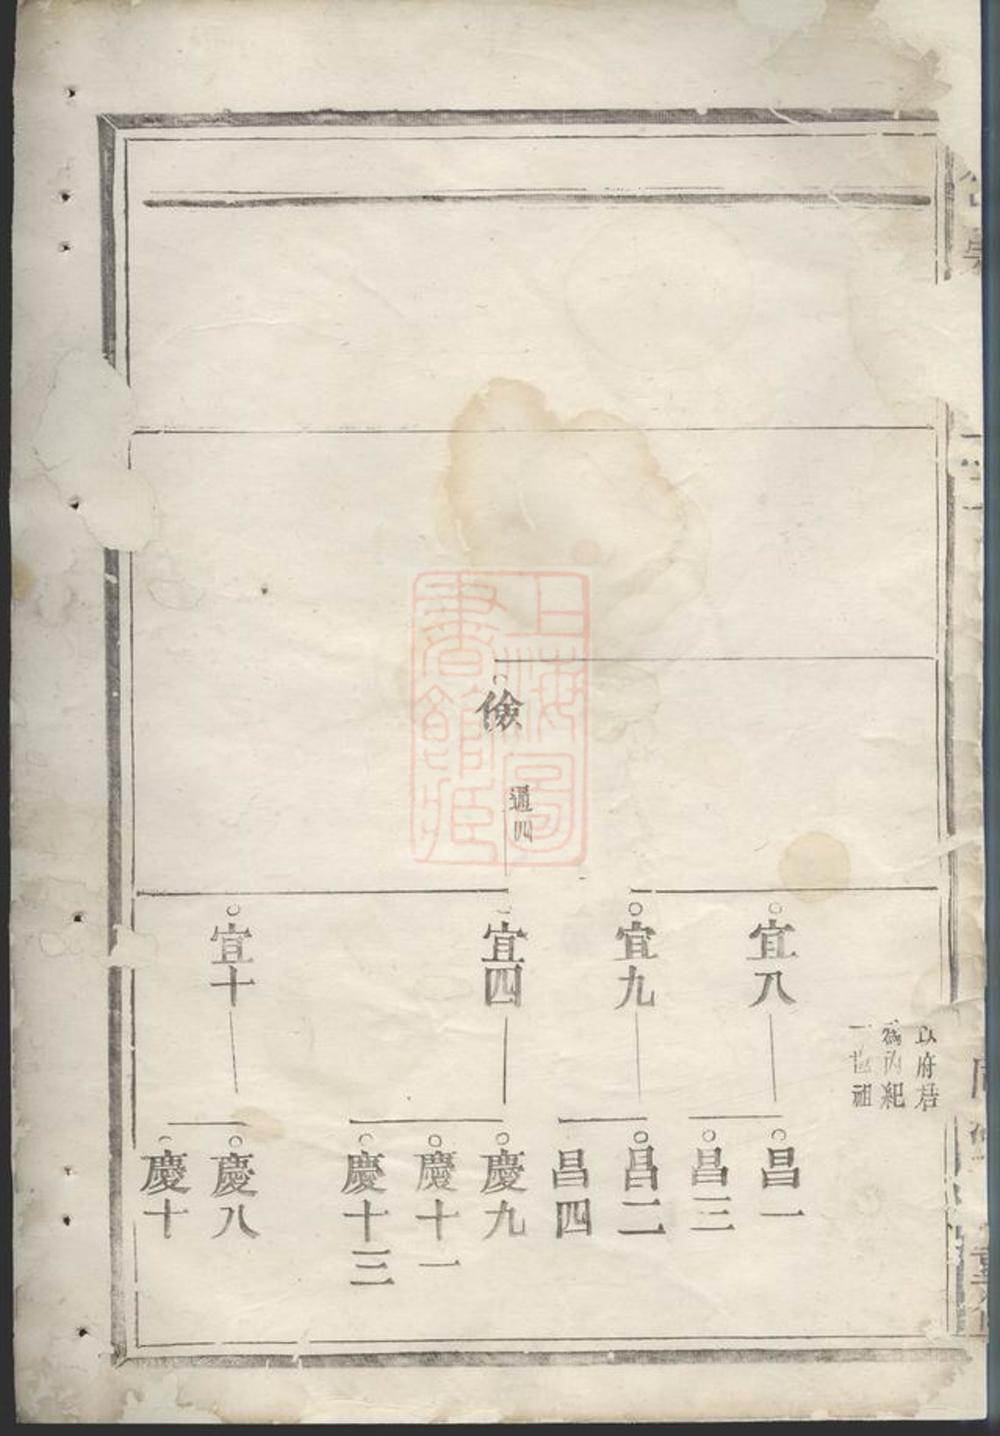 儉
通四
宜八
宜九
宜四
宜十
以府君
為丙紀
一世祖
昌一
昌三
昌二
昌四
慶九
慶十一
慶十三
慶八
慶十
上海圖
書館藏